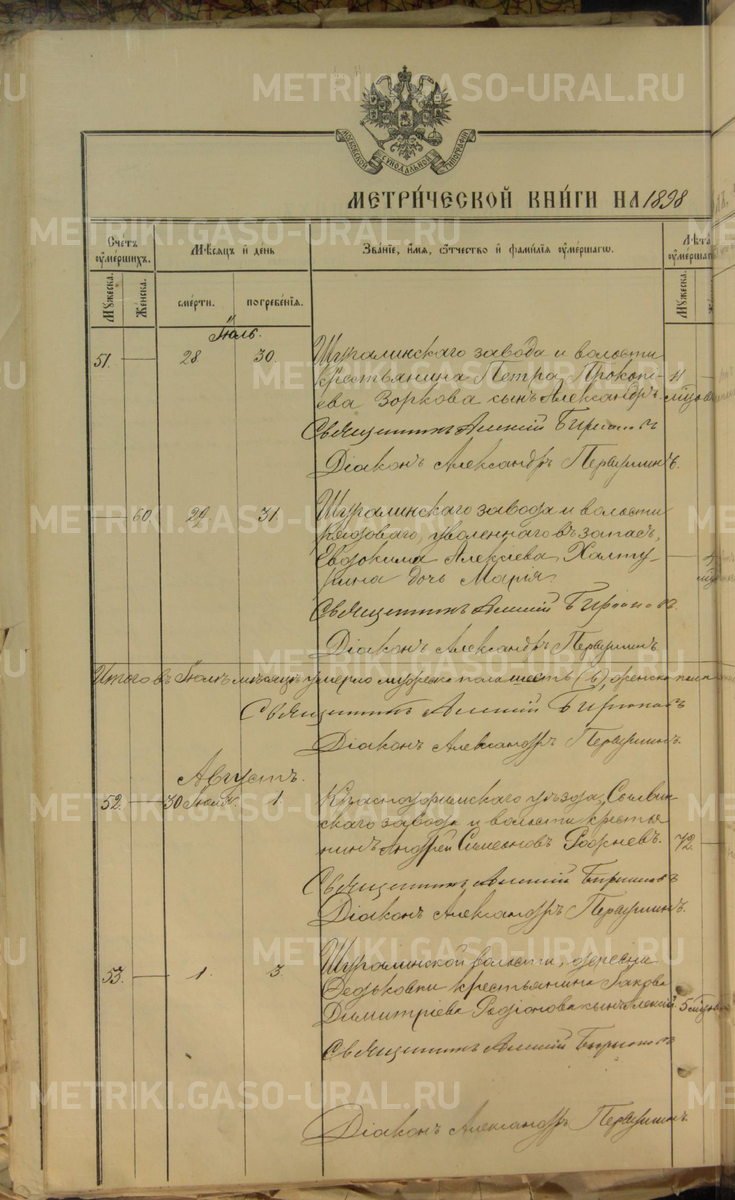 METRIKI.GASO-URAL.RU
МОСКОВСКОЙ СѴНОДАЛЬНОЙ ТИПОГРАФІИ
МЕТРИ́ЧЕСКОЙ КНИ́ГИ НА 1898
Сче́тъ ѹме́ршихъ.
Мѣ́сяцъ и҆ де́нь
Зва́нїе, и҆́мя, ѻ҆́тчество и҆ фами́лїя ѹ҆ме́ршагѡ.
Лѣ́та ѹ҆ме́рша
Мѹ́жеска.
Же́нска.
сме́рти.
погребе́нїя.
Мѹ́жеска.
Іюль.
51. — 28 30. Шуралинскаго завода и волости
крестьянина Петра Прокопі- 11
ева Зоркова сынъ Александръ. мѣсяц
Священникъ Алексій Бирюковъ
Діаконъ Александръ Первушинъ.
— 60. 29 31. Шуралинскаго завода и волости
рядоваго, уволеннаго въ запасъ,
Евдокима Алексѣева Халту-
рина дочь Марія
Священникъ Алексій Бирюковъ
Діаконъ Александръ Первушинъ.
Итого въ Іюлѣ мѣсяцѣ умерло мужска пола шесть (6), женска пола
Священникъ Алексій Бирюковъ
Діаконъ Александръ Первушинъ.
Августъ.
52. — 30 Іюля 1 Красноуфимскаго уѣзда, Сылвин-
скаго завода и волости крестья
нинъ Андрей Симеоновъ 72. —
Священникъ Алексій Бирюковъ
Діаконъ Александръ Первушинъ.
53. — 1. 3. Шуралинской волости, деревни
Ѳедьковки крестьянина Іакова
Димитріева Родіонова сынъ Алексій. 5 мѣсяц
Священникъ Алексій Бирюковъ
Діаконъ Александръ Первушинъ.